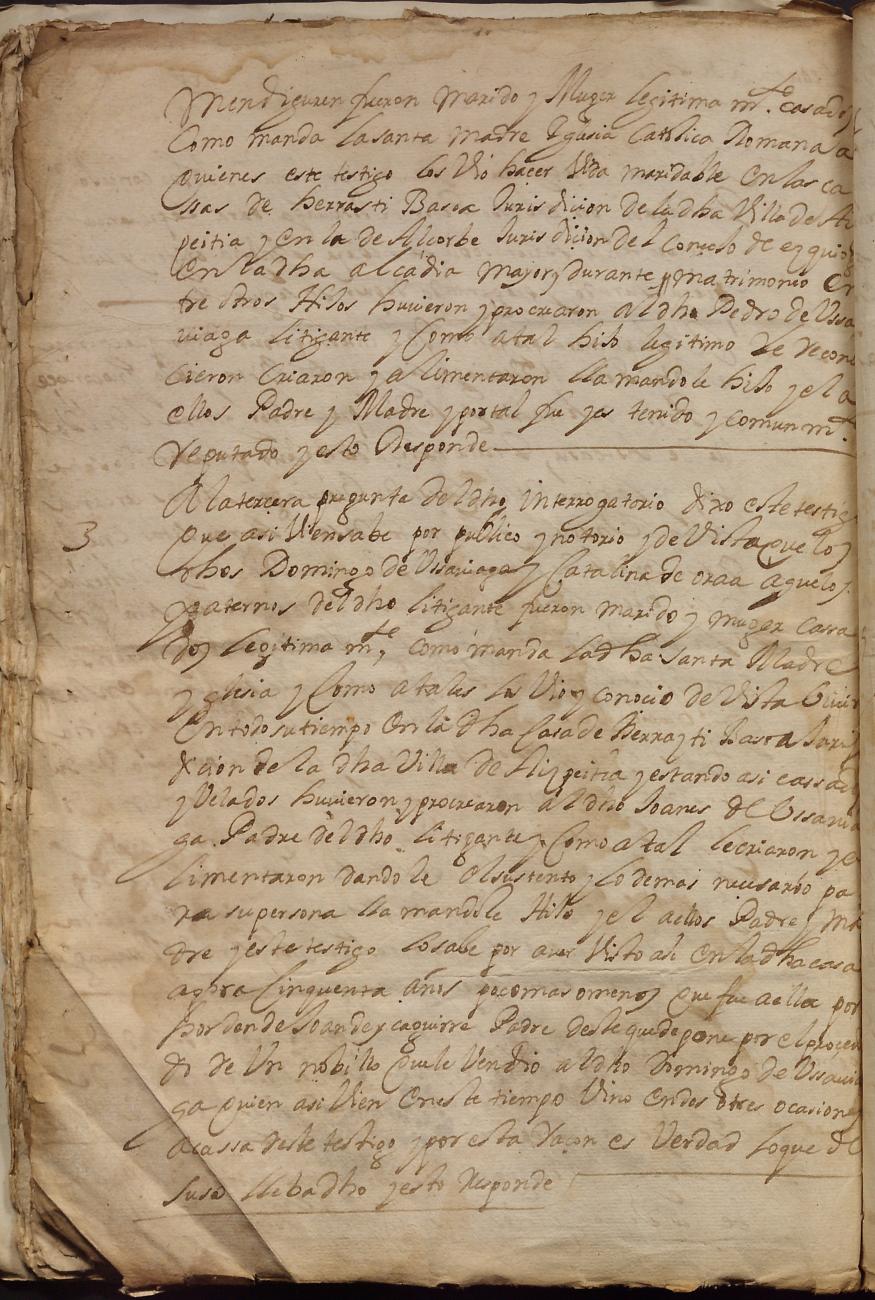 Mendiguren fueron marido y Muger legitima mte casados
Como manda la santa madre Yglesia Catolica Romana a
quienes este testigo los Vio hacer Vida maridable en las ca
ssas de herrasti Basca Jurisdicion de la dha Villa de A
peitia y en la de Alcorbe Jurisdicion del Concejo de ezquio
en la dha alcaldia mayor y durante matrimonio en
tre otros Hijos huvieron y procrearon al dho Pedro de Ussa
viaga litigante y Como a tal hijo legitimo le recono
cieron Criaron y alimentaron llamandole hijo y el a
ellos Padre y Madre y por tal fue y es tenido y comun mte
reputado y esto Responde
3
A la tercera pregunta del dho interrogatorio dixo este testigo
que asi Vien sabe por publico y notorio y de Vista que los
dhos Domingo de Ussaviaga y Catalina de oraa aguelos
paternos del dho litigante fueron marido y muger cassa
dos legitima mte, como manda la dha Santa Madre
yglesia y Como a tales los Vio y conocio de Vista Vivir
en todo su tiempo en la dha Casa de Herrasti Basca Juris
dicion de la dha Villa de Azpeitia y estando asi cassados
y Velados huvieron y procrearon al dho Joanes de Ussavia
ga Padre del dho litigante y Como a tal le criaron y a
limentaron dandole el sustento y lo demas necesario pa
ra su persona llamandole Hijo y el a ellos Padre y Ma
dre y este testigo lo sabe por aver Visto asi en la dha casa
agora Cinquenta años poco mas o menos que fue a ella por
horden de Joan de ycaguirre Padre deste que depone por el proced
do de Un nobillo que le Vendio al dho Domingo de Ussavia
ga quien asi Vien en este tiempo Vino en dos o tres ocasiones
a cassa deste testigo y por esta raçon es Verdad lo que de
suso lleba dho y esto responde